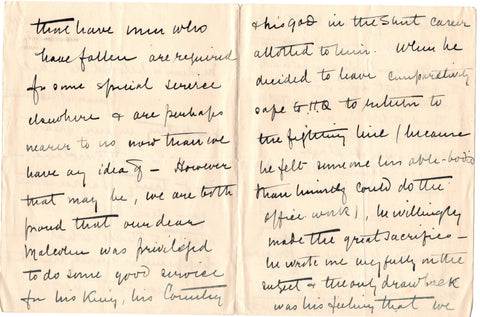 these brave men who
have fallen are required
for some special service
elsewhere & are perhaps
nearer to us now than we
have any idea of – However
that may be, we are both
proud that our dear
Malcolm was privileged
to do some good service
for his King, his Country
& his God in the short career
allotted to him. When he
decided to leave comparatively
safe H.Q to return to
the fighting line (because
he felt someone less able-bodied
than himself could do the
office work), he willingly
made the great sacrifice –
he wrote me very fully on the
subject & the only drawback
was his feeling that we